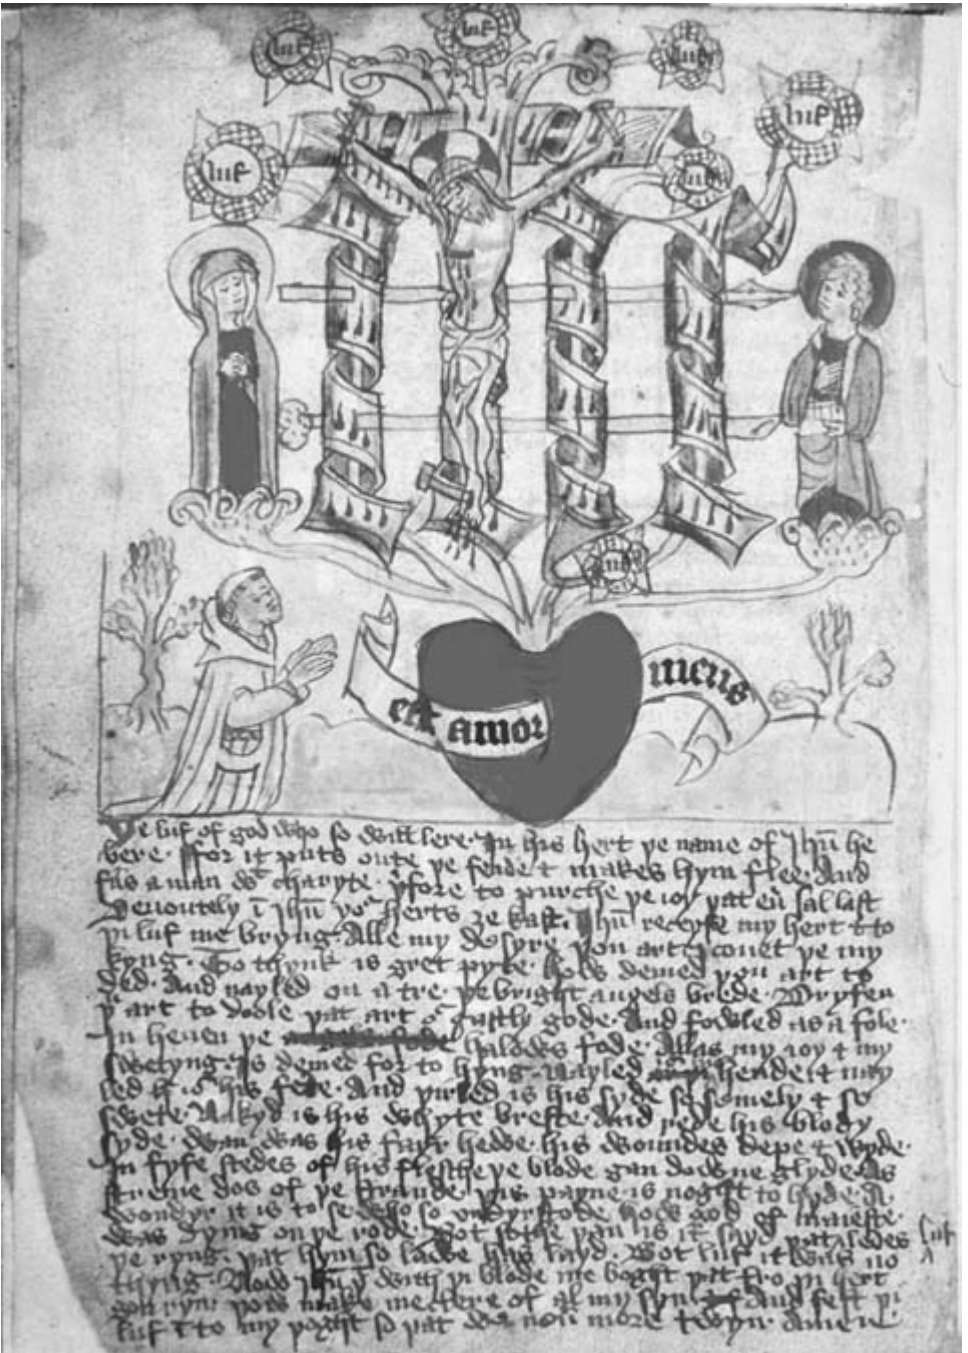 luf
luf
luf
luf
luf
luf
luf
est amor
meus
Þe luf of god who so will lere In his hert þe name of Ihū he
bere ffor it puts oute þe feude & makes hym flee And
fils a man charyte to purche þe ioy þat sal last
Deuoutely ī Ihū herts ze kast Ihū receyfe my hert & to
þi luf me bryng Alle my desyre þou art I couet þe my
kyng To thynk is gret pyte how demed þou art to
ded And nayled on a tre þe bright angels brede Dryfen
þ art to doole þat art gastly gode And fowled as a fole
In heuen þe halows fode Allas my ioy & my
swetyng Is demed for to hyng Nayled hende & may
his fete And þirled is his syde so semely & so
swete Nakyd is his whyte breste And rede his blody
syde Wan was his fayr hewe his woundes depe & wyde
In fyfe stedes of his flesche þe blode gan downe glyde As
streme dos of þe strande þis payne is noght to hyde A
wondyr it is to se who so vndyrstode how god of maieste
was dyeng on þe rode Bot sothe þen is it sayd þat ledes luf
þe ryng þat hym so lawe has layd Bot luf it was no
thyng Now Ihū þ with þi blode me boght fro þi hert
ryn make me clere of al my syn And fest þi
luf to my thoght so þat we neū more twyn Amen